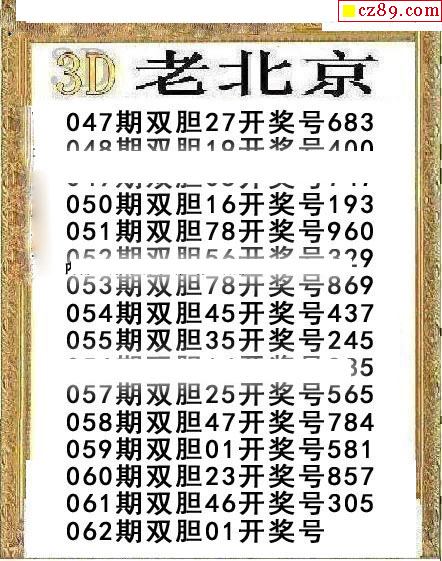 cz89.com
3D 老北京
047期双胆27开奖号683
050期双胆16开奖号193
051期双胆78开奖号960
053期双胆78开奖号869
054期双胆45开奖号437
055期双胆35开奖号245
057期双胆25开奖号565
058期双胆47开奖号784
059期双胆01开奖号581
060期双胆23开奖号857
061期双胆46开奖号305
062期双胆01开奖号